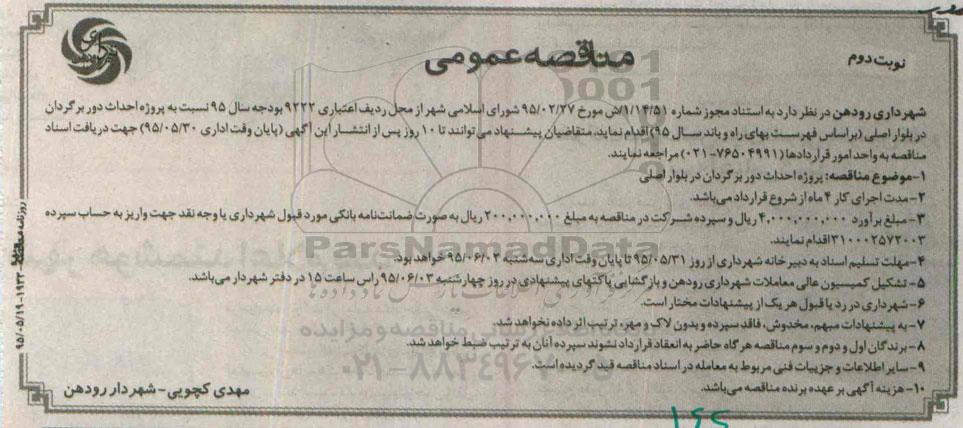 نوبت دوم
مناقصه عمومی
شهرداری رودهن
شهرداری رودهن در نظر دارد به استناد مجوز شماره ۱/۱۴/۵۱/ش مورخ ۹۵/۰۲/۲۷ شورای اسلامی شهر از محل ردیف اعتباری ۹۲۲۲ بودجه سال ۹۵ نسبت به پروژه احداث دور برگردان
در بلوار اصلی (براساس فهرست بهای راه و باند سال ۹۵) اقدام نماید. متقاضیان پیشنهاد می توانند تا ۱۰ روز پس از انتشار این آگهی (پایان وقت اداری ۹۵/۰۵/۳۰) جهت دریافت اسناد
مناقصه به واحد امور قراردادها (۷۶۵۰۴۹۹۱-۰۲۱) مراجعه نمایند.
۱-موضوع مناقصه: پروژه احداث دور برگردان در بلوار اصلی
۲-مدت اجرای کار ۴ ماه از شروع قرارداد می‌باشد.
۳- مبلغ برآورد ۴,۰۰۰,۰۰۰,۰۰۰ ریال و سپرده شرکت در مناقصه به مبلغ ۲۰۰,۰۰۰,۰۰۰ ریال به صورت ضمانت‌نامه بانکی مورد قبول شهرداری یا وجه نقد جهت واریز به حساب سپرده
۳۱۰۰۰۲۵۷۲۰۰۳ اقدام نمایند.
۴-مهلت تسلیم اسناد به دبیرخانه شهرداری از روز ۹۵/۰۵/۳۱ تا پایان وقت اداری سه‌شنبه ۹۵/۰۶/۰۲ خواهد بود.
۵- تشکیل کمیسیون عالی معاملات شهرداری رودهن و بازگشایی پاکتهای پیشنهادی در روز چهارشنبه ۹۵/۰۶/۰۳ راس ساعت ۱۵ در دفتر شهردار می‌باشد.
۶-شهرداری در رد یا قبول هر یک از پیشنهادات مختار است.
۷- به پیشنهادات مبهم، مخدوش، فاقد سپرده و بدون لاک و مهر، ترتیب اثر داده نخواهد شد.
۸- برندگان اول و دوم و سوم مناقصه هرگاه حاضر به انعقاد قرارداد نشوند سپرده آنان به ترتیب ضبط خواهد شد.
۹-سایر اطلاعات و جزییات فنی مربوط به معامله در اسناد مناقصه قید گردیده است.
۱۰- هزینه آگهی بر عهده برنده مناقصه می‌باشد.
مهدی کچویی-شهردار رودهن
ParsNamadData
۰۲۱-۸۸۳۴۹۶۷۰
۹۵/۰۵/۱۹-۱۹۳۳
روزنامه